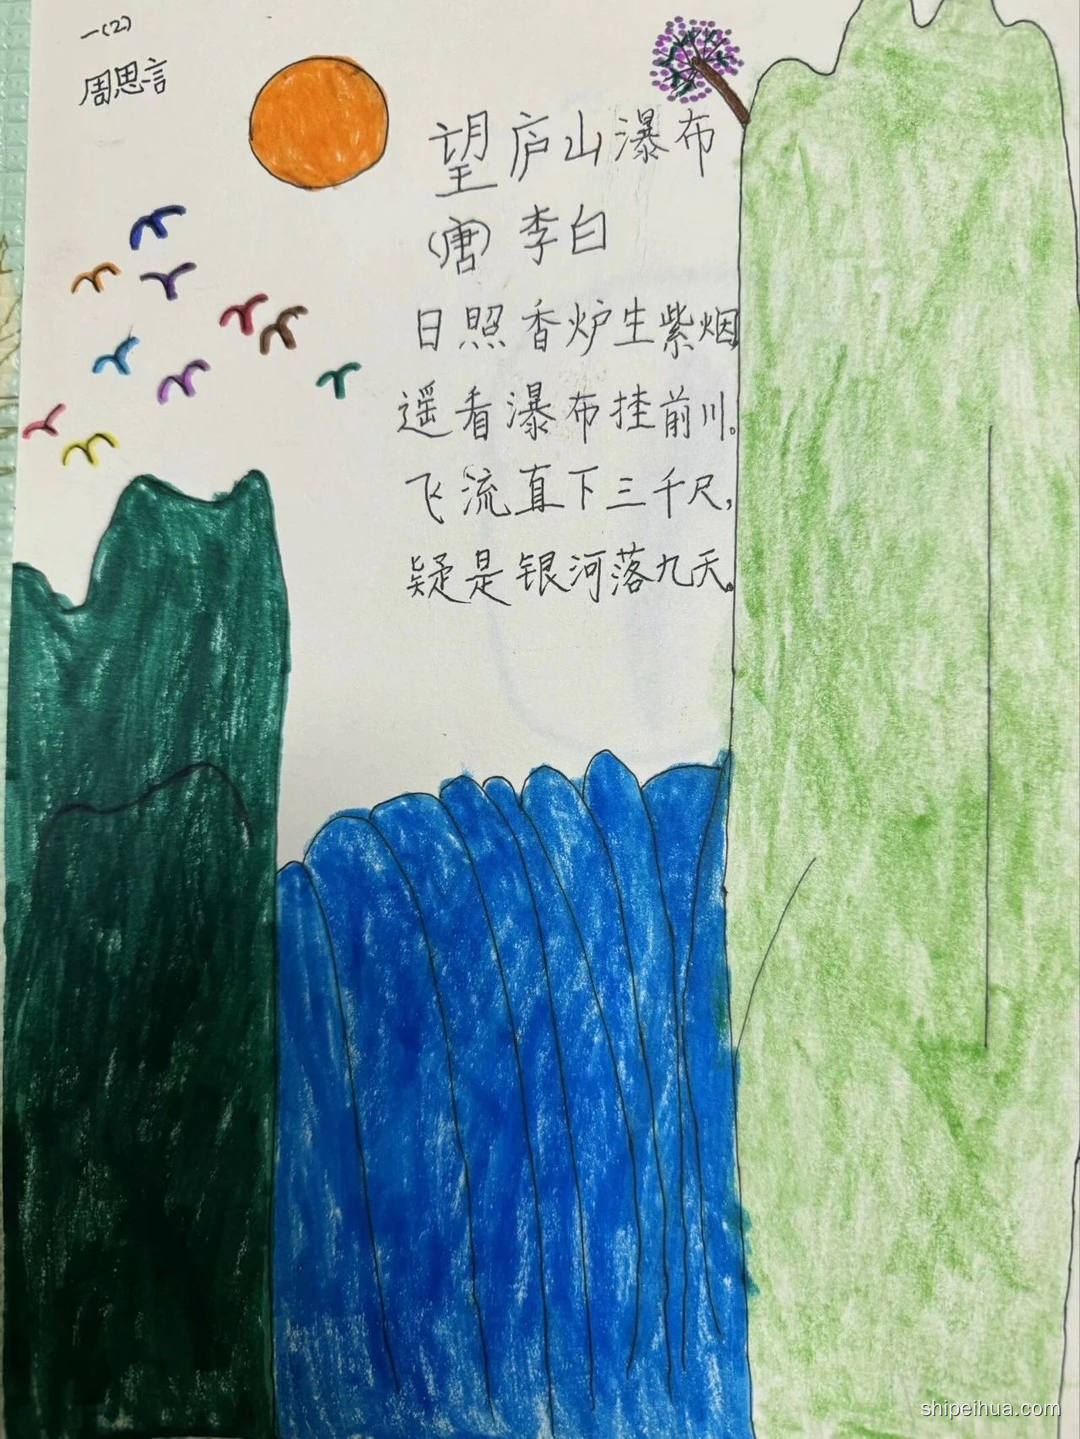 一(2)
周思言
望庐山瀑布
(唐) 李白
日照香炉生紫烟
遥看瀑布挂前川。
飞流直下三千尺,
疑是银河落九天。
shipeihua.com